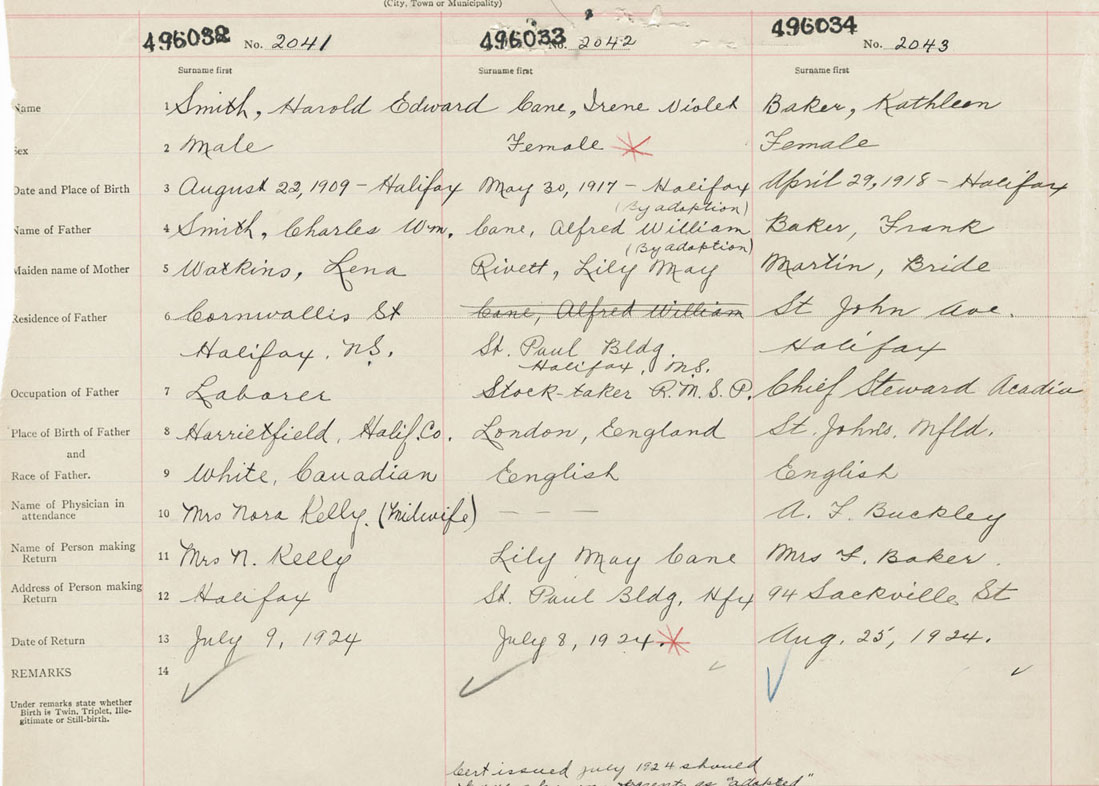 (City, Town or Municipality)
496032 No. 2041 496033 No. 2042 496034 No. 2043
Surname first Surname first Surname first
Name 1 Smith, Harold Edward Cane, Irene Violet Baker, Kathleen
Sex 2 Male Female Female
Date and Place of Birth 3 August 22, 1909 - Halifax May 30, 1917 - Halifax April 29, 1918 - Halifax
(By adoption)
Name of Father 4 Smith, Charles Wm. Cane, Alfred William Baker, Frank
(By adoption)
Maiden name of Mother 5 Watkins, Lena Rivett, Lily May Martin, Bride
Residence of Father 6 Cornwallis St Cane, Alfred William St John Ave.
Halifax. N.S. St. Paul Bldg. Halifax
Halifax, N.S.
Occupation of Father 7 Laborer Stock-taker R.M.S.P. Chief Steward Acadia
Place of Birth of Father 8 Harrietfield, Halif. Co. London, England St. John's. Nfld.
and
Race of Father. 9 White, Canadian English English
Name of Physician in
attendance 10 Mrs Nora Kelly. (Midwife) - - - A. F. Buckley
Name of Person making
Return 11 Mrs N. Kelly Lily May Cane Mrs F. Baker.
Address of Person making
Return 12 Halifax St. Paul Bldg. Hfx 94 Sackville St
Date of Return 13 July 9, 1924 July 8, 1924. Aug. 25, 1924.
REMARKS 14
Under remarks state whether
Birth is Twin, Triplet, Ille-
gitimate or Still-birth.
Cert issued July 1924 should
as "adopted"